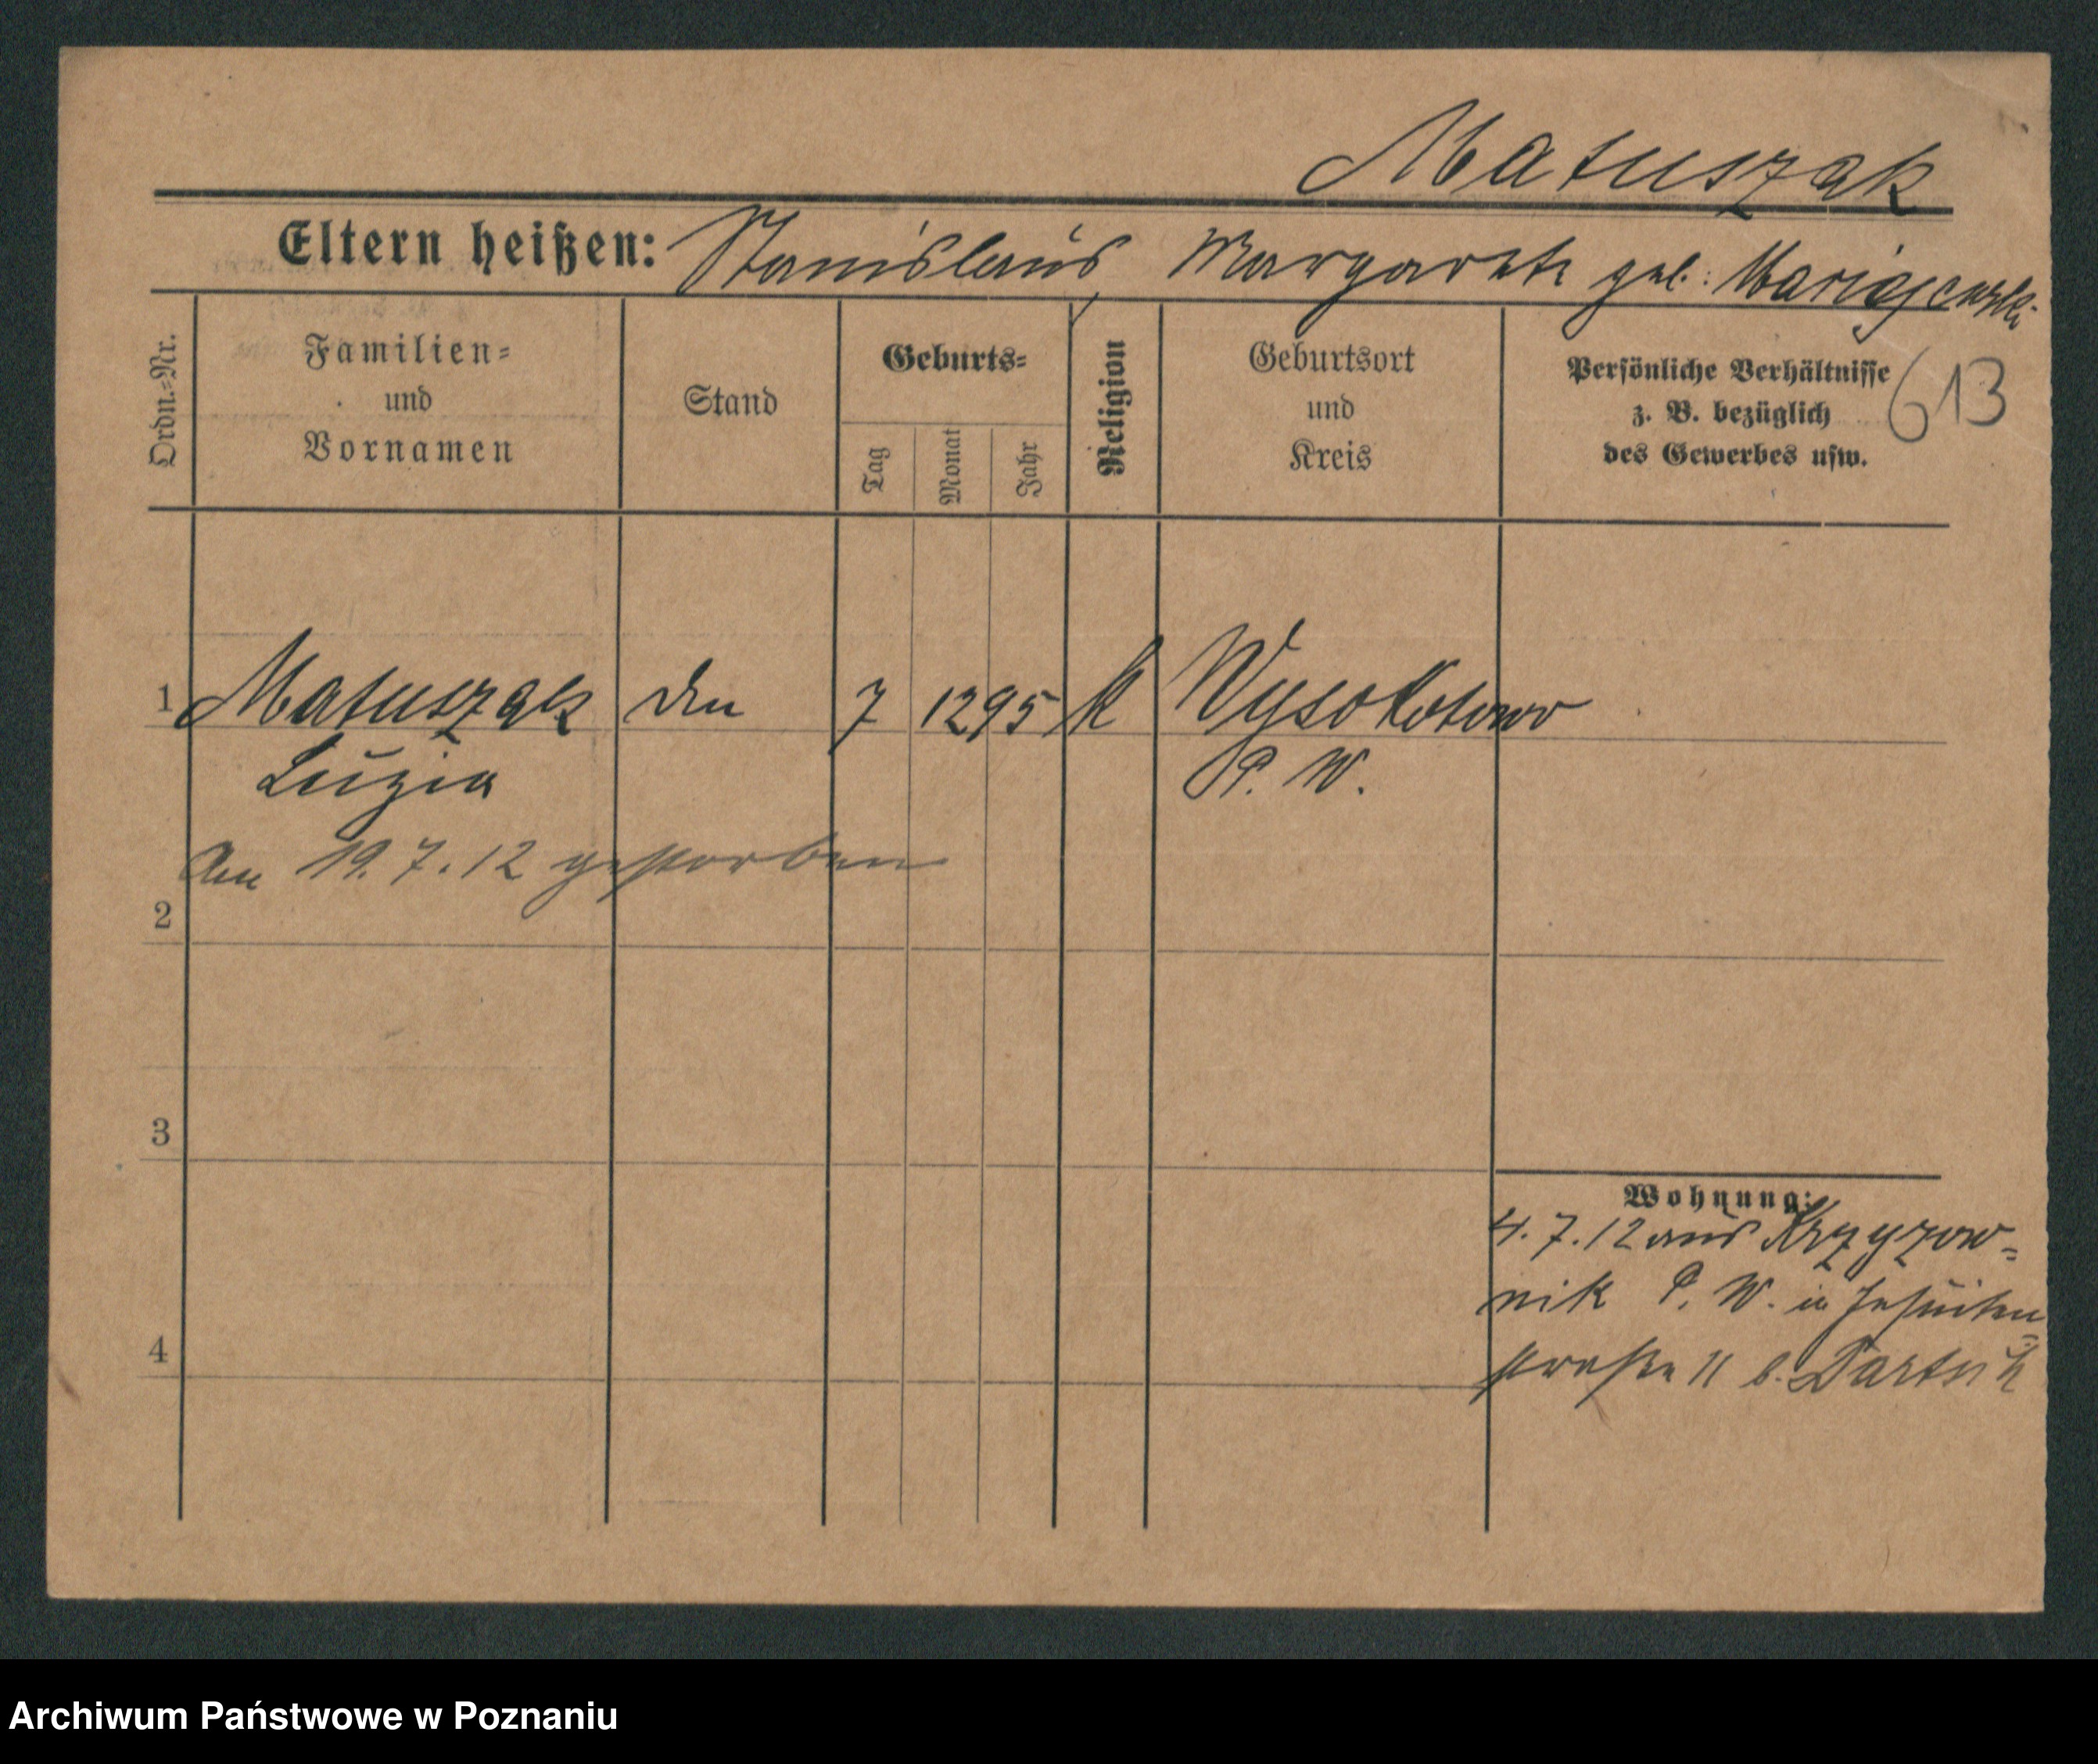 Matuszak
Eltern heißen: Stanislaus, Margarete geb.:
613
Ordn.-Nr.
Familien-
und
Vornamen
Stand
Geburts-
Tag
Monat
Jahr
Religion
Geburtsort
und
Kreis
Persönliche Verhältnisse
z. B. bezüglich
des Gewerbes usw.
1 Matuszak 7 12 95 k Wysokotowo
Luzia P. W.
Am 19.7.12 gestorben
2
3
Wohnung:
4.7.12 aus Krzyzow-
nik P. W. in Jesuiten
4
straße 11 b.
Archiwum Państwowe w Poznaniu